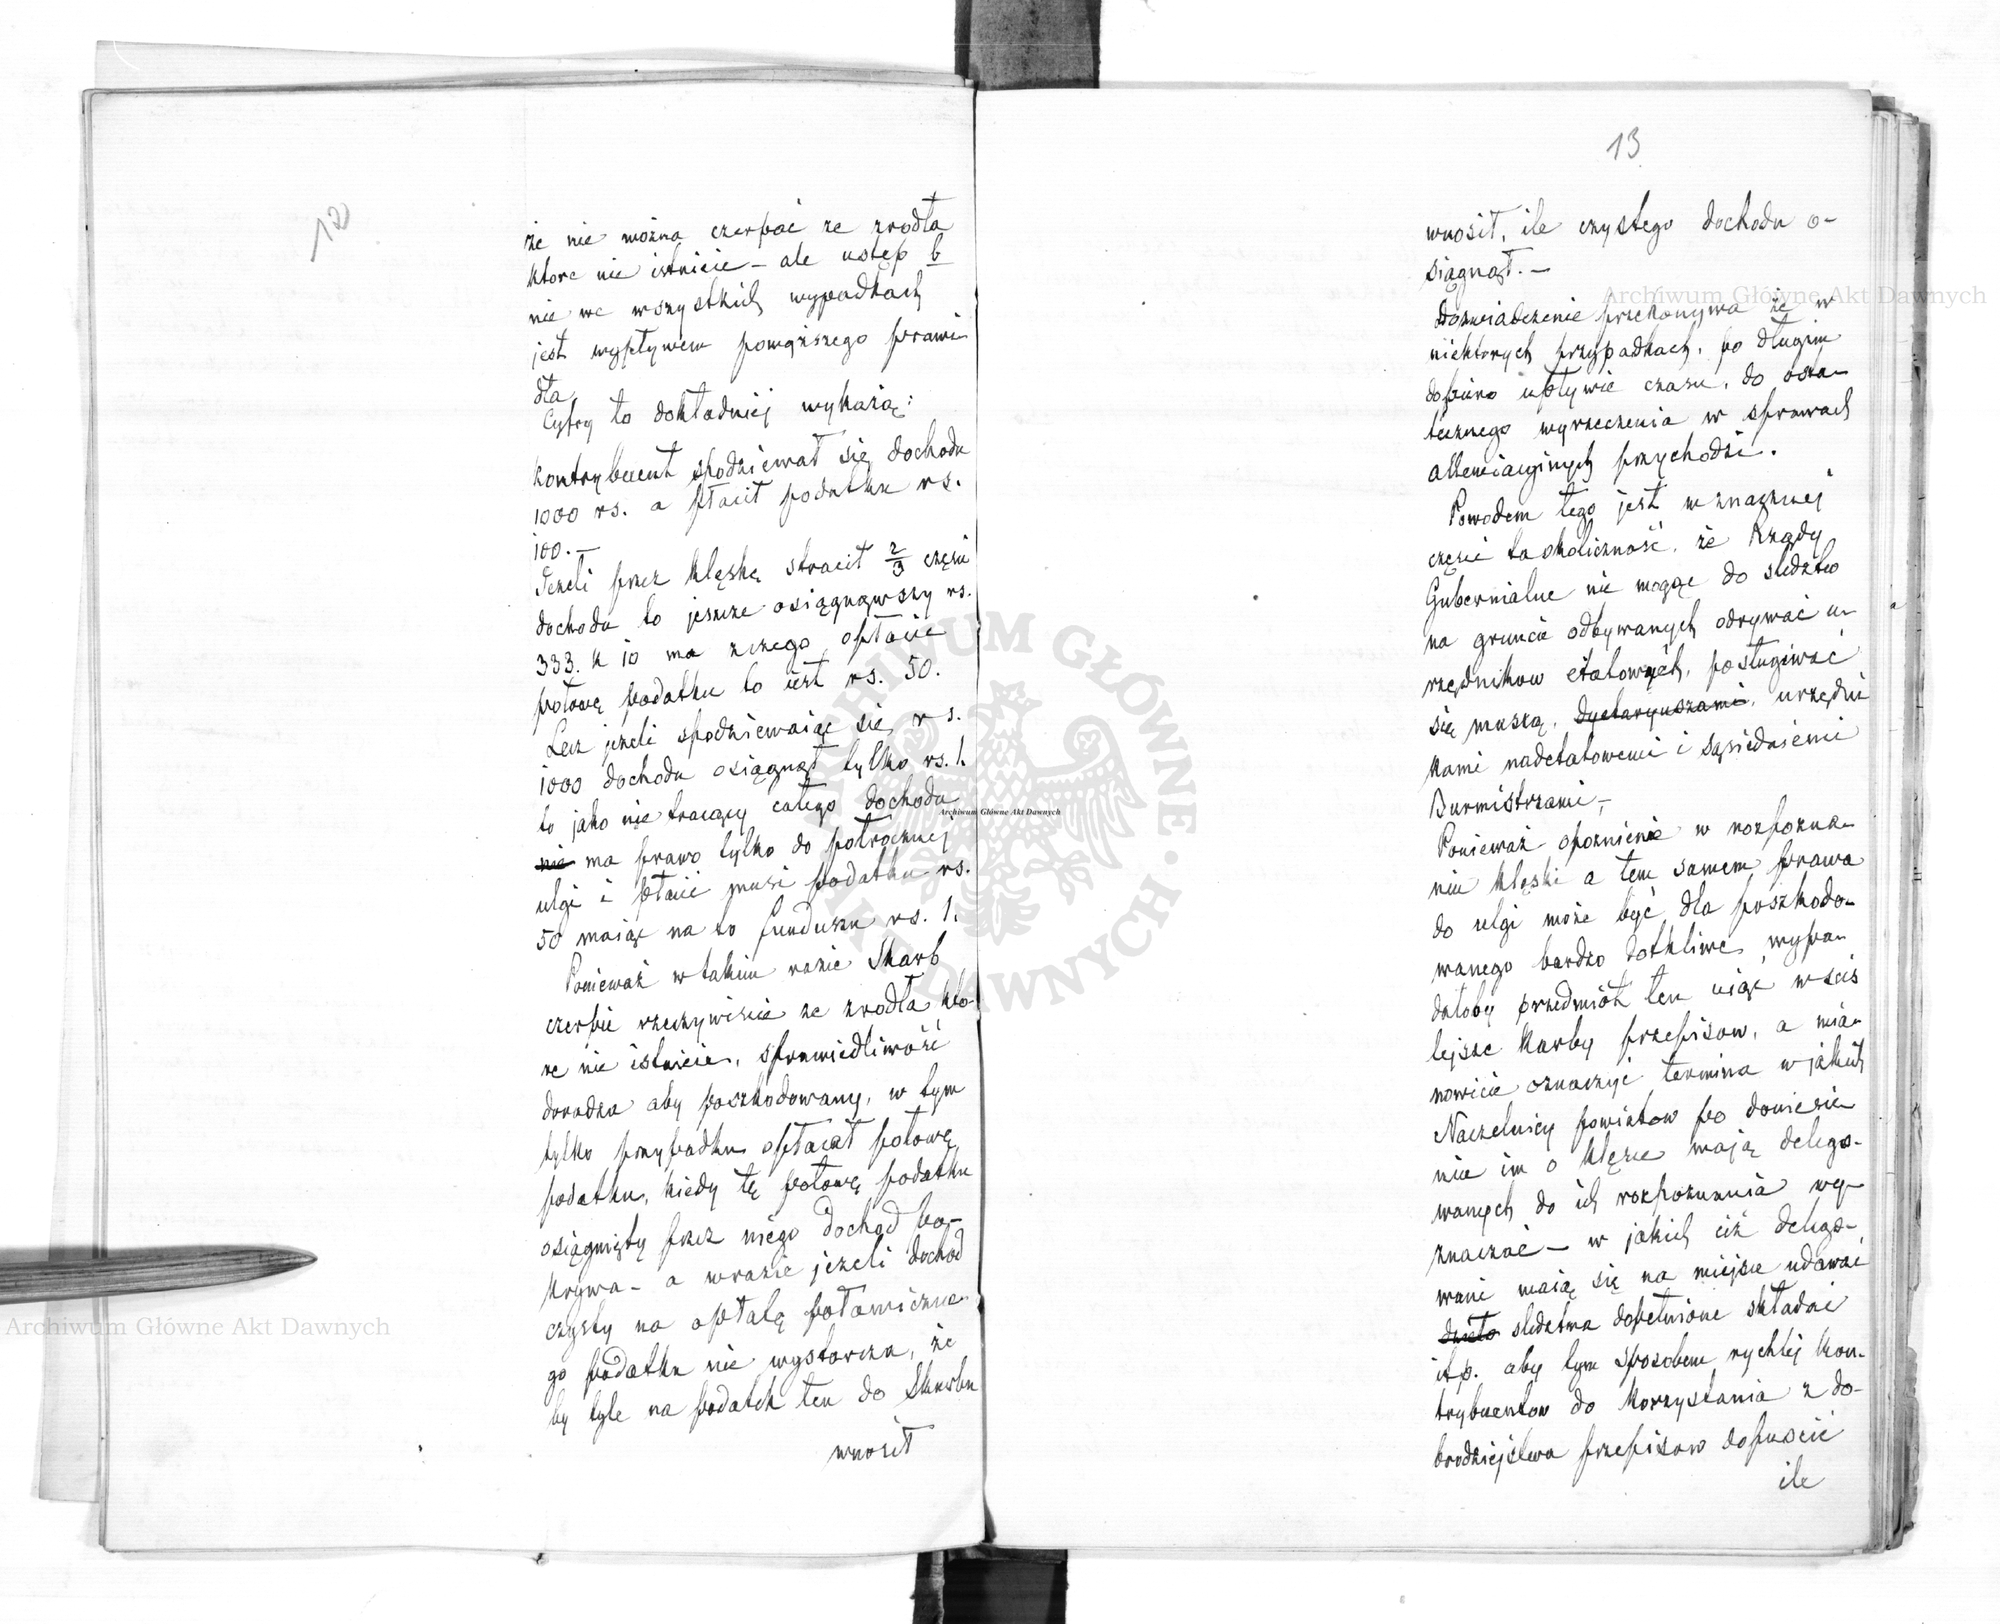 12
że nie można czerpać ze zrodła
ktore nie istnieie – ale ustęp b
nie we wszystkich wypadkach
jest wypływem powyższego prawi
dła
Cyfry to dokładniej wykażą:
Kontrybuent spodziewał się dochodu
1000 rs. a płacił podatku rs.
100. –
Jeżeli przez klęskę stracił 2/3 części
dochodu to jeszcze osiągnąwszy rs.
333. k 10 ma z czego opłacić
połowę podatku to iest rs. 50.
Lecz jeżeli spodziewaiąc się rs.
1000 dochodu osiągnął tylko rs. 1.
to jako nie tracący całego dochodu
nie ma prawo tylko do połrocznej
ulgi i płacić musi podatku rs.
50 maiąc na to funduszu rs. 1.
Ponieważ w takim razie Skarb
czerpie rzeczywiscie ze zrodła kto-
re nie istnieie, sprawiedliwość
doradza aby poszkodowany, w tym
tylko przypadku opłacał połowę
podatku, kiedy tę połowę podatku
osiągnięty przez niego dochod po-
krywa – a w razie jeżeli dochod
czysty na opłatę połowiczne
go podatku nie wystarcza, że
by tyle na podatek ten do Skarbu
wnosił
13
wnosił, ile czystego dochodu o-
siągnął. –
Doswiadczenie przekonywa że w
niektorych przypadkach, po długim
dopiero upływie czasu, do osta-
tecznego wyrzeczenia w sprawach
allewiacyinych przychodzi.
Powodem tego jest w znacznej
części ta okoliczność, że Rządy
Gubernialne nie mogąc do sledztw
na gruncie odbywanych odrywać u-
rzędnikow etatowych, posługiwać
się muszą, dyetaryuszami, urzędni
kami nadetatowemi i sąsiedniemi
Burmistrzami –
Ponieważ opoznienie w rozpozna-
niu klęski a tem samem prawa
do ulgi może być dla poszkodo-
wanego bardzo dotkliwe, wypa-
dałoby przedmiot ten uiąć w scis
lejsze karby przepisow, a mia-
nowicie oznaczyć termina w jakich
Naczelnicy powiatow po doniesie-
niu im o klęsce mają delego-
wanych do ich rozpoznania wy-
znaczać – w jakich ciż delego-
wani maią się na miejsce udawać
sledztwa dopełnione składać
itp. aby tym sposobem rychlej kon-
trybuentow do korzystania z do-
brodziejstwa przepisow dopuścić
ile
Archiwum Główne Akt Dawnych
Archiwum Główne Akt Dawnych
Archiwum Główne Akt Dawnych
ARCHIWUM GŁÓWNE AKT DAWNYCH